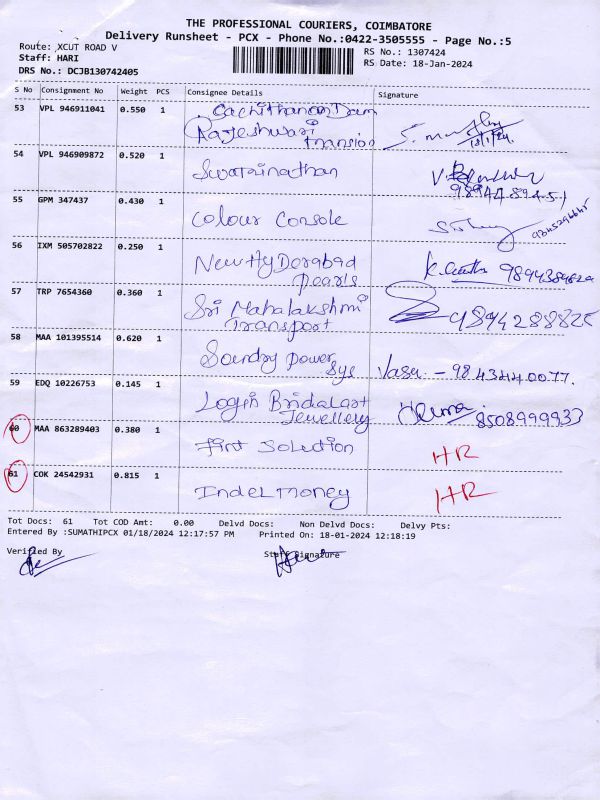 THE PROFESSIONAL COURIERS, COIMBATORE
Delivery Runsheet - PCX - Phone No.:0422-3505555 - Page No.:5
Route: XCUT ROAD V
RS No.: 1307424
Staff: HARI
RS Date: 18-Jan-2024
DRS No.: DCJB130742405
S No Consignment No Weight PCS Consignee Details Signature
53 VPL 946911041 0.550 1
Rajeshwari
18/1/24
54 VPL 946909872 0.520 1 Swaminathan
55 GPM 347437 0.430 1 Colour Console
56 IXM 505702822 0.250 1 New Hyderabad
Pearls
57 TRP 7654360 0.360 1 Sri Mahalakshmi
Transport
58 MAA 101395514 0.620 1 Power
Sys Vasu
59 EDQ 10226753 0.145 1 Login
Jewellery 8508999933
60 MAA 863289403 0.380 1 Solution HR
61 COK 24542931 0.815 1 Indel Money HR
Tot Docs: 61 Tot COD Amt: 0.00 Delvd Docs: Non Delvd Docs: Delvy Pts:
Entered By :SUMATHIPCX 01/18/2024 12:17:57 PM Printed On: 18-01-2024 12:18:19
Verified By Staff Signature